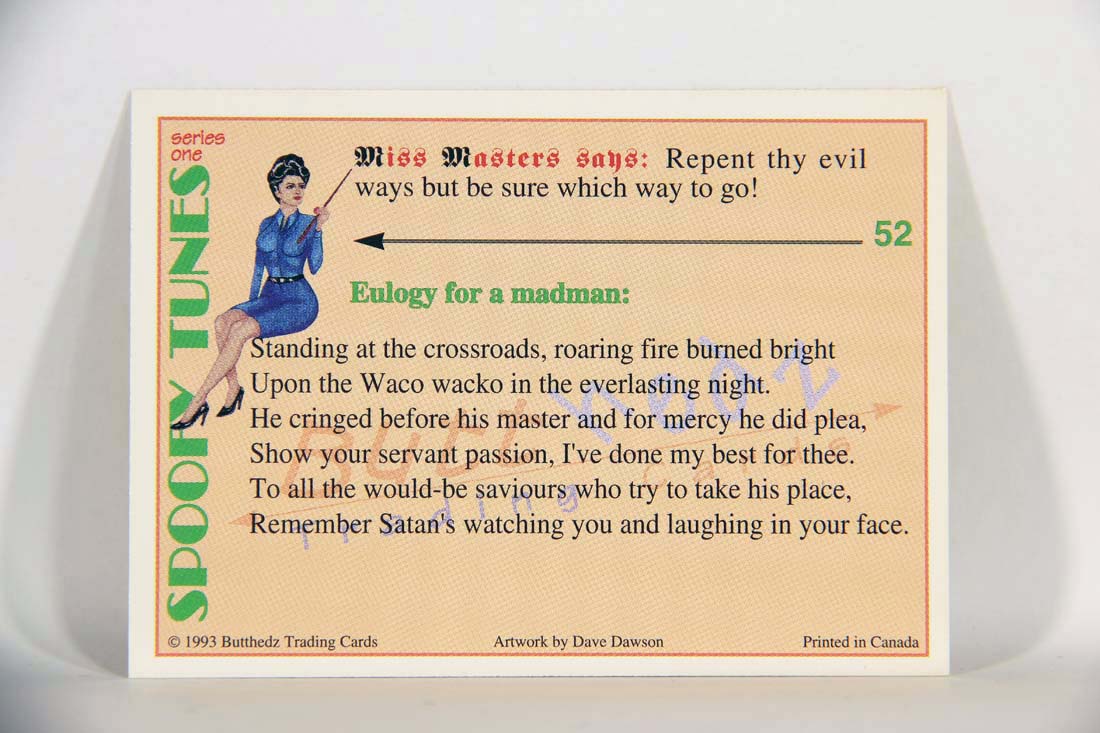 series
one
SPOOFY TUNES
Miss Masters says: Repent thy evil
ways but be sure which way to go!
52
Eulogy for a madman:
Standing at the crossroads, roaring fire burned bright
Upon the Waco wacko in the everlasting night.
He cringed before his master and for mercy he did plea,
Show your servant passion, I've done my best for thee.
To all the would-be saviours who try to take his place,
Remember Satan's watching you and laughing in your face.
Butthedz
Trading Cards
© 1993 Butthedz Trading Cards
Artwork by Dave Dawson
Printed in Canada